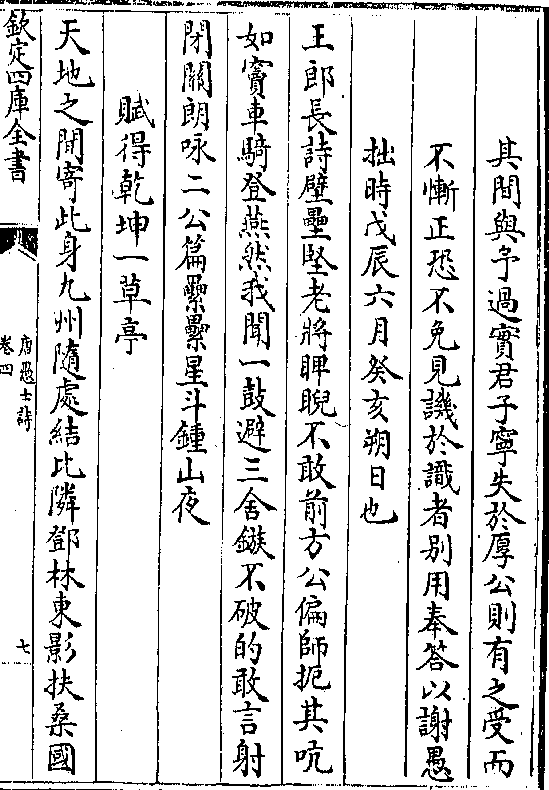 其間與予過實君子寧失於厚公則有之受而
不慚正恐不免見譏於識者别用奉答以謝愚
拙時戊辰六月癸亥朔日也
王郎長詩壁壘堅老將睥睨不敢前方公偏師扼其吭
如竇車騎登燕然我聞一鼓避三舍鏃不破的敢言射
閉關朗咏二公篇纍纍星斗鍾山夜
賦得乾坤一草亭
天地之間寄此身九州隨處結比隣鄧林東影扶桑國
欽定四庫全書
唐愚士詩
卷四
七